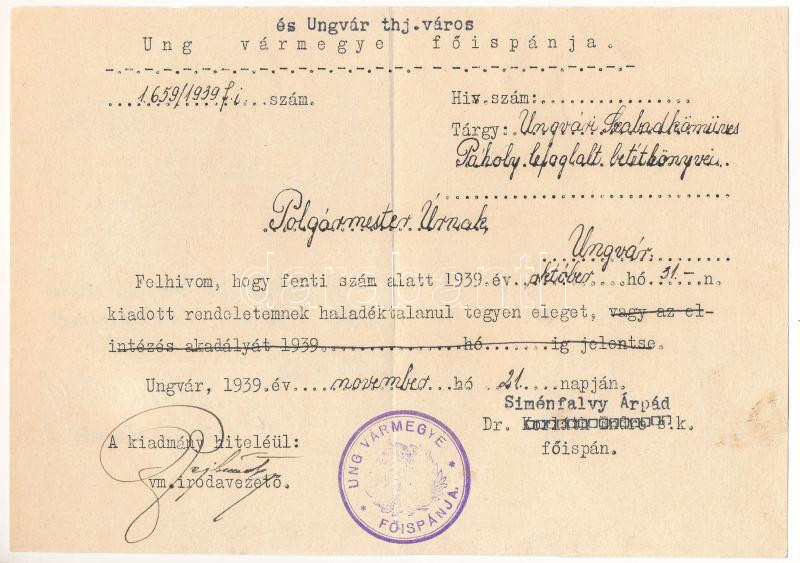 és Ungvár thj.város
Ung vármegye főispánja.
1.659/1939 f.i. szám.
Hiv.szám:
Tárgy: Ungvári Szabadkőműves
Páholy lefoglalt betétkönyvei.
Polgármester Úrnak,
Ungvár.
Felhivom, hogy fenti szám alatt 1939.év október hó 31-n.
kiadott rendeletemnek haladéktalanul tegyen eleget, vagy az el-
intézés akadályát 1939 hó ig jelentse.
Ungvár, 1939.év. november hó 21. napján.
Siménfalvy Árpád
Dr. s.k.
főispán.
A kiadmány hiteléül:
vm.irodavezető.
UNG VÁRMEGYE
* FŐISPÁNJA. *
darabanth